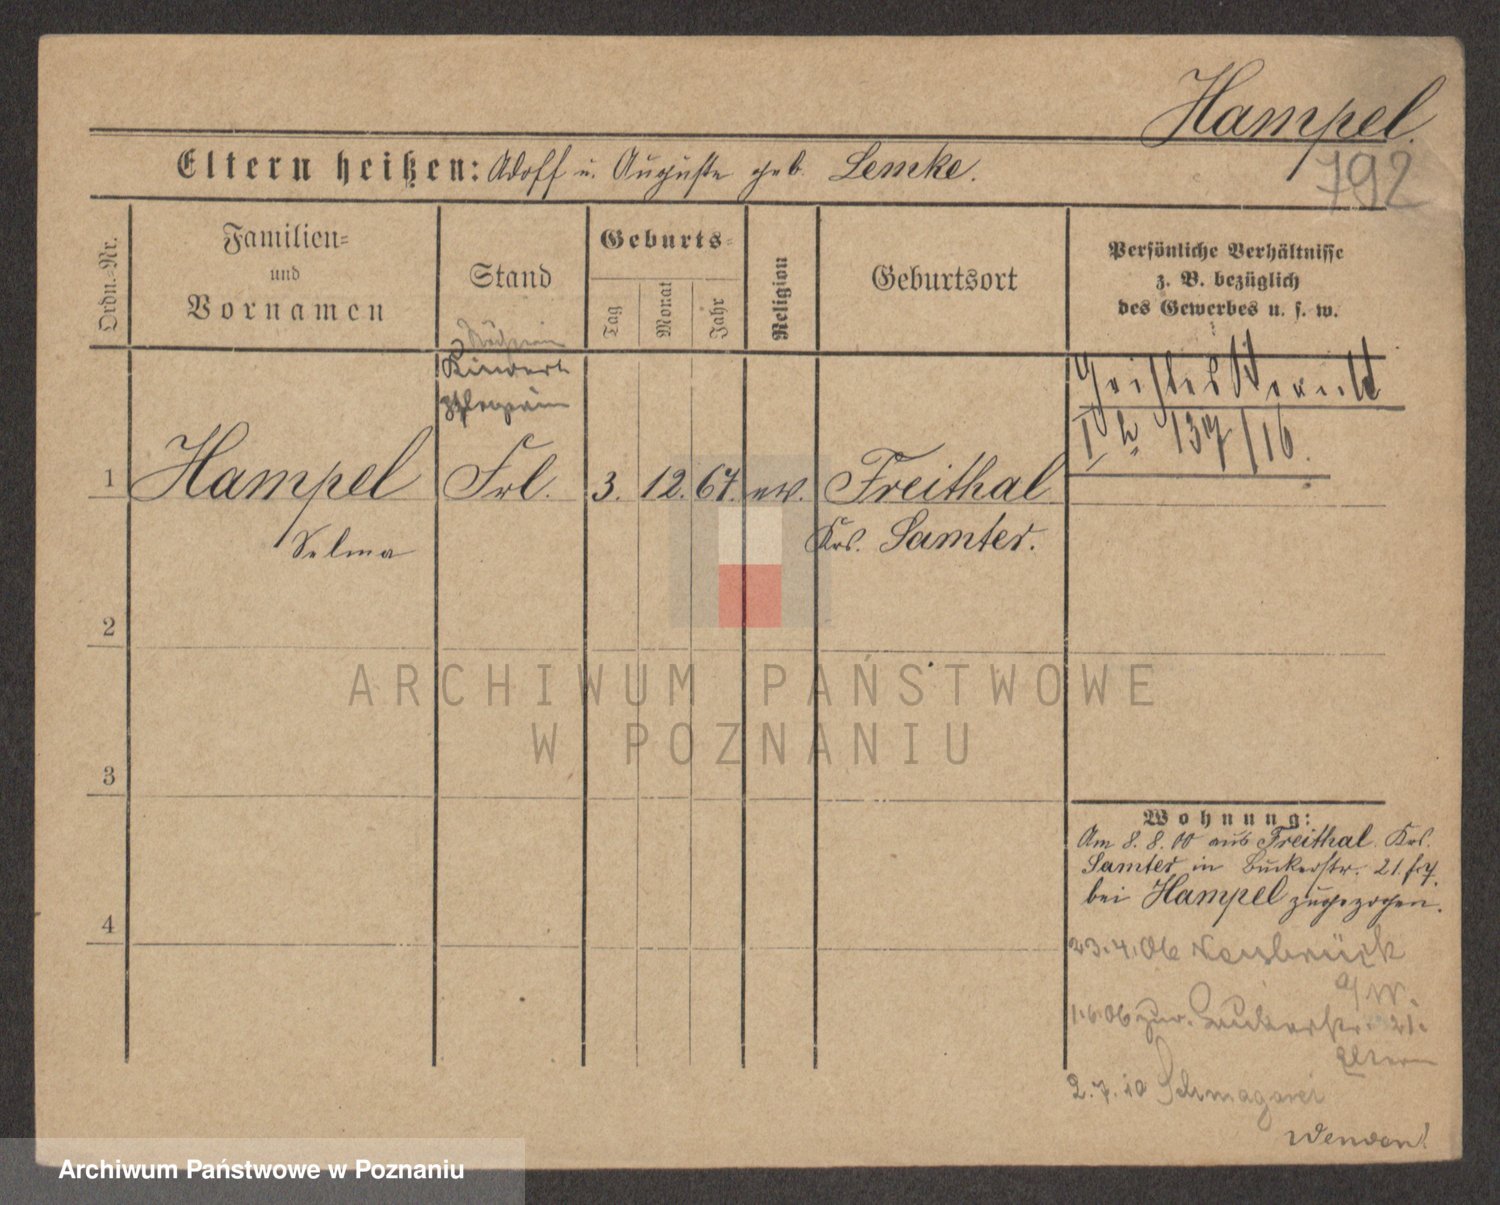 Hampel.
792
Eltern heißen: Adolf u. Auguste geb. Lemke.
Ordn.-Nr.
Familien-
und
Vornamen
Stand
Geburts-
Tag
Monat
Jahr
Religion
Geburtsort
Persönliche Verhältnisse
z. B. bezüglich
des Gewerbes u. s. w.
Köchin
Kinder
pflegerin
137/16.
1 Hampel Frl. 3. 12. 67. ev. Freithal
Selma Krs. Samter.
2
3
4
Wohnung:
Am 8. 8. 00 aus Freithal Krs.
Samter in Bukerstr. 21.
bei Hampel zugezogen.
23.4.06 Neubrück
a/W.
1.6.06 zur. Bukerstr. 21.
Eltern
2.7.10
wenden!
ARCHIWUM PAŃSTWOWE
W POZNANIU
Archiwum Państwowe w Poznaniu